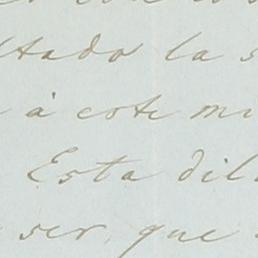 ltado la s
à este mi
Esta dil
ser, que